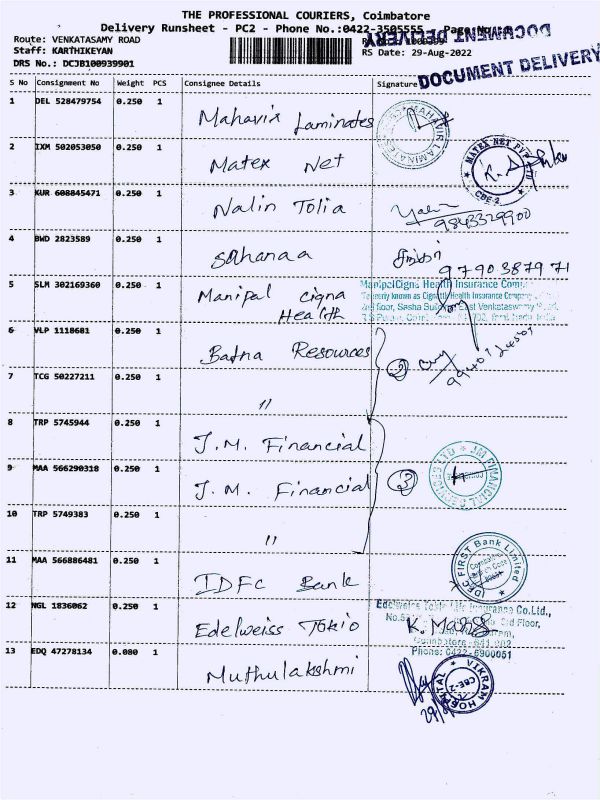 THE PROFESSIONAL COURIERS, Coimbatore
Delivery Runsheet - PC2 - Phone No.:0422-3505555
Route: VENKATASAMY ROAD
Staff: KARTHIKEYAN
DRS No.: DCJB100939901
RS Date: 29-Aug-2022
DOCUMENT DELIVERY
DOCUMENT DELIVERY
S No Consignment No Weight PCS Consignee Details Signature
1 DEL 528479754 0.250 1 Mahavir Laminates
2 IXM 502053050 0.250 1 Matex Net
MATEX NET PVT
CBE-2
3 KUR 608845471 0.250 1 Nalin Tolia
9843329900
4 BWD 2823589 0.250 1 Sahanaa
9790387971
5 SLM 302169360 0.250 1 Manipal Cigna Health
ManipalCigna Health Insurance Company
6 VLP 1118681 0.250 1 Batna Resources
2
7 TCG 50227211 0.250 1 "
8 TRP 5745944 0.250 1 J.M. Financial
9 MAA 566290318 0.250 1 J.M. Financial
3
JM FINANCIAL SERVICES LTD
10 TRP 5749383 0.250 1 "
11 MAA 566886481 0.250 1 IDFC Bank
IDFC FIRST Bank Limited
12 NGL 1836062 0.250 1 Edelweiss Tokio
Edelweiss Tokio Life Insurance Co.Ltd.,
3rd Floor,
Phone: 0422-6900051
13 EDQ 47278134 0.080 1 Muthulakshmi
VIKRAM HOSPITAL
CBE-2